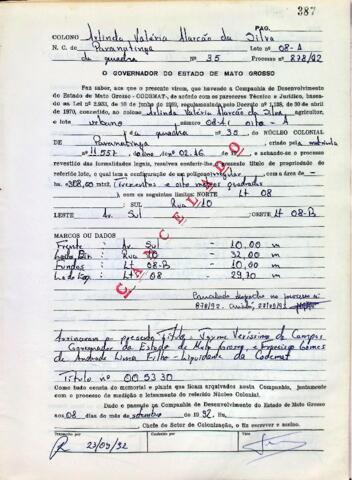 387
PAG.
COLONO Arlinda Valéria Alarcão da Silva
N. C. de Paranatinga Lote nº 08-A
da quadra Nº 35 Processo nº 878/92
O GOVERNADOR DO ESTADO DE MATO GROSSO
Faz saber, aos que o presente virem, que havendo a Companhia de Desenvolvimento
do Estado de Mato Grosso - CODEMAT, de acordo com os pareceres Técnico e Jurídico, basea-
do na Lei nº 2.933, de 16 de junho de 1969, regulamentada pelo Decreto nº 1.138, de 30 de abril
de 1970, concedido ao colono Arlinda Valéria Alarcão da Silva, agricultor,
o lote urbano número 08-A oito - A
da quadra nº 35. DO NÚCLEO COLONIAL
DE Paranatinga criado pela matrícula
nº 11.557 Livro 02.46 e achando-se o processo
revestido das formalidades legais, resolveu conferir-lhe o presente título de propriedade do
referido lote, o qual tem a configuração de um polígono irregular com a área de
ha 308,00 mtr2 (Trezentos e oito metros quadrados
), com os seguintes limites: NORTE Lt 08
SUL Rua 10
LESTE Av. Sul OESTE Lt 08-B
CANCELADO
MARCOS OU DADOS
Frente Av. Sul - 10,00 m
Rua 10 - 32,00 m
Fundos Lt 08-B - 10,00 m
Lt 08 - 29,70 m
Cancelado despacho no processo nº
878/92.
Assinaram o presente título - Jayme Veríssimo de Campos
Governador do Estado de Mato Grosso, e Francisco Gomes
de Andrade Lima Filho - Liquidante da Codemat
Título nº 005330
Tudo consta do memorial e planta que ficam arquivados nesta Companhia, juntamente
com o processo de medição e loteamento do referido Núcleo Colonial.
Dado e passado na Companhia de Desenvolvimento do Estado de Mato Grosso
aos 08 dias do mês de setembro de 1992. Eu,
Chefe do Setor de Colonização, o fiz escrever e assino.
Conferido por
Visto
23/09/92